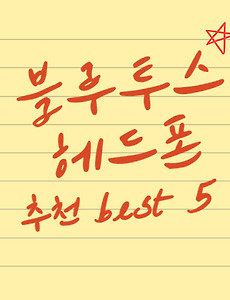 블루투스
헤드폰
추천 best 5